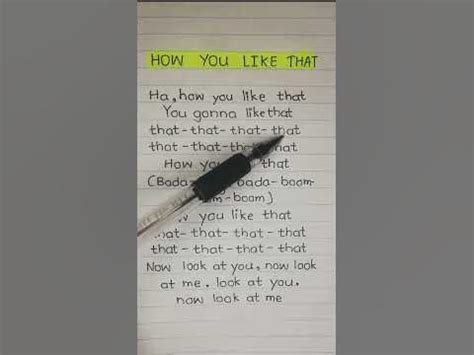 HOW YOU LIKE THAT
Ha, how you like that
You gonna like that
that-that-that-that
that-that-that-that
How you that
(Bada bada-boom-
boom)
you like that
that-that-that-that
that-that-that-that
Now look at you, now look
at me. look at you.
now look at me